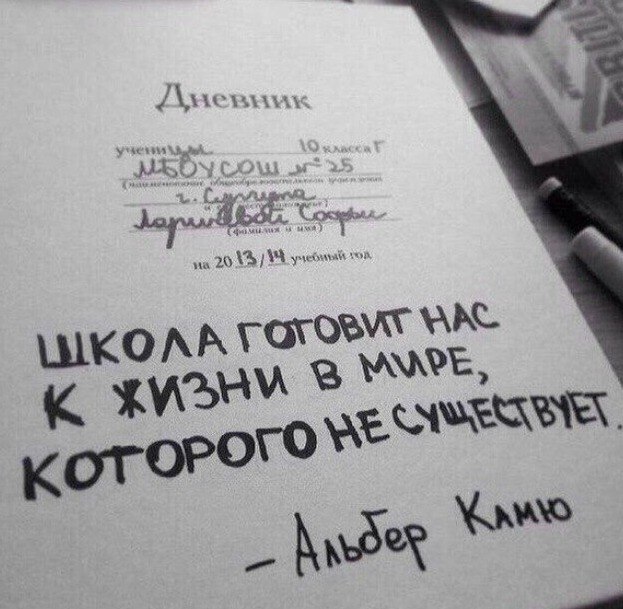 Дневник
ученицы 10 класса Г
МБОУСОШ №25
(наименование общеобразовательного учреждения)
г. Сургута
Лариновой Софьи
(фамилия и имя)
на 2013/14 учебный год
ШКОЛА ГОТОВИТ НАС
К ЖИЗНИ В МИРЕ,
КОТОРОГО НЕ СУЩЕСТВУЕТ.
- Альбер Камю